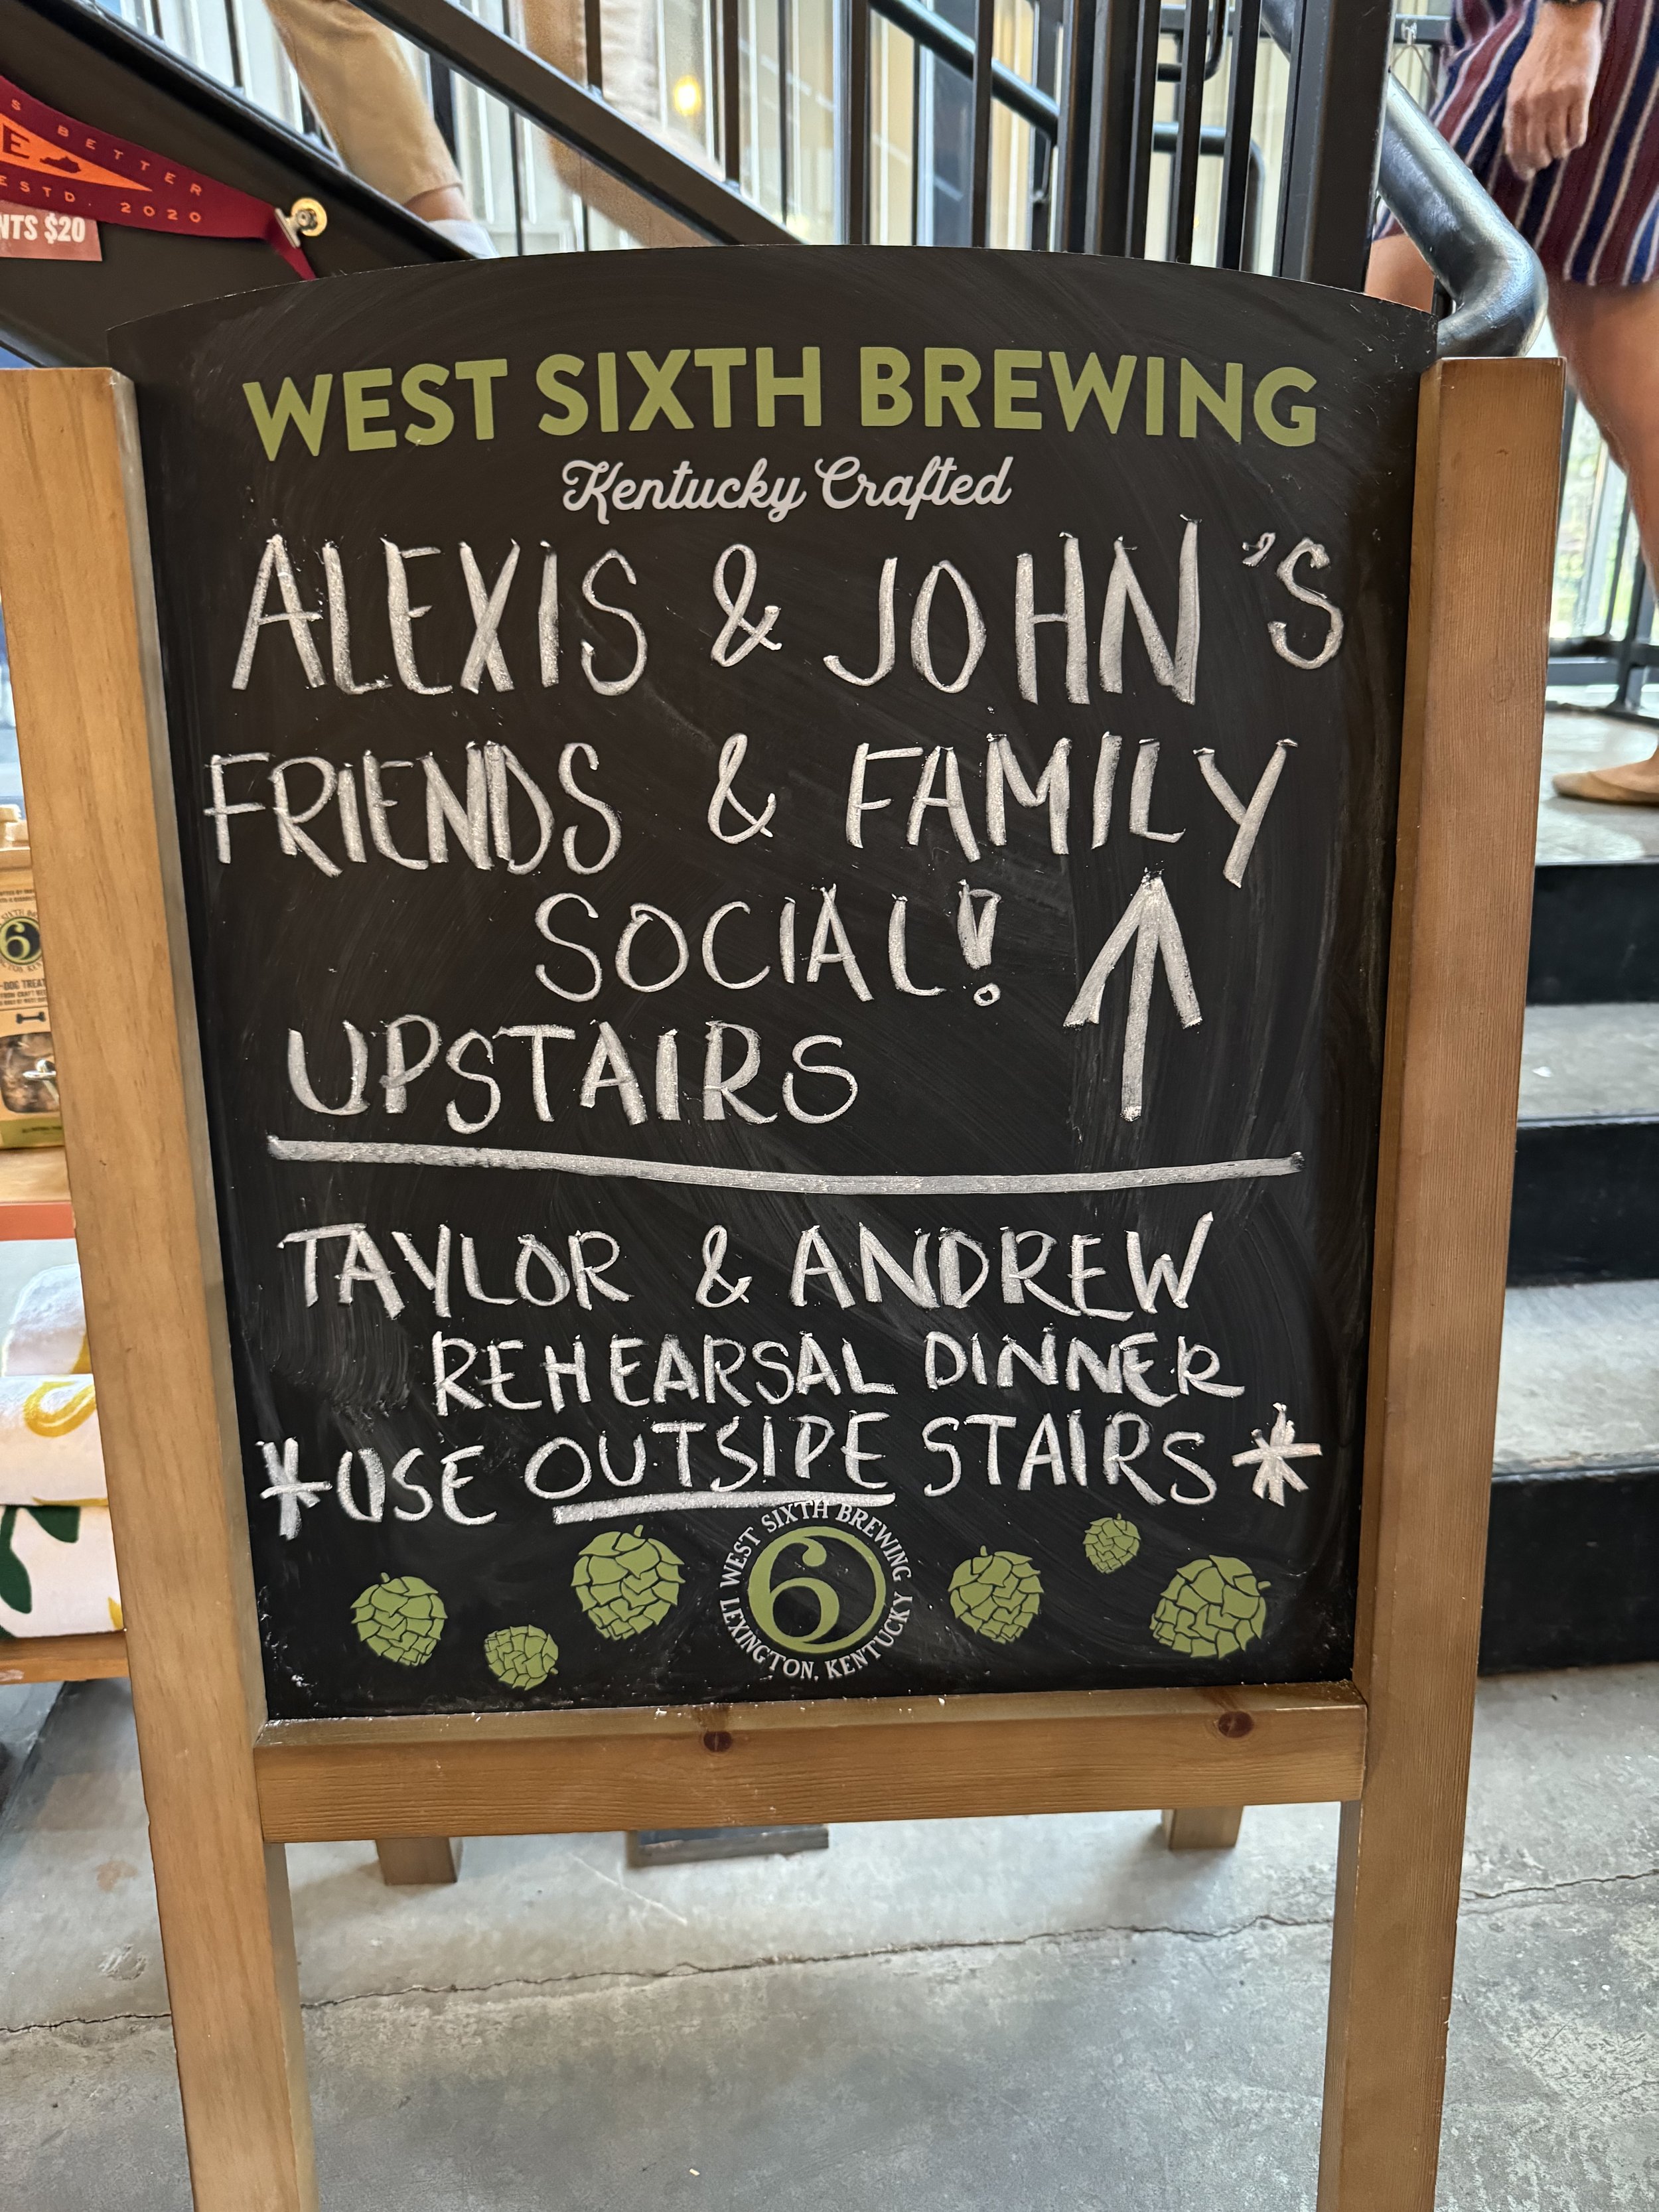 S BETTER
E
ESTD. 2020
NTS $20
WEST SIXTH BREWING
Kentucky Crafted
ALEXIS & JOHN'S
FRIENDS & FAMILY
SOCIAL!
UPSTAIRS
TAYLOR & ANDREW
REHEARSAL DINNER
*USE OUTSIDE STAIRS*
WEST SIXTH BREWING
6
LEXINGTON, KENTUCKY
6
-DOG TREAT